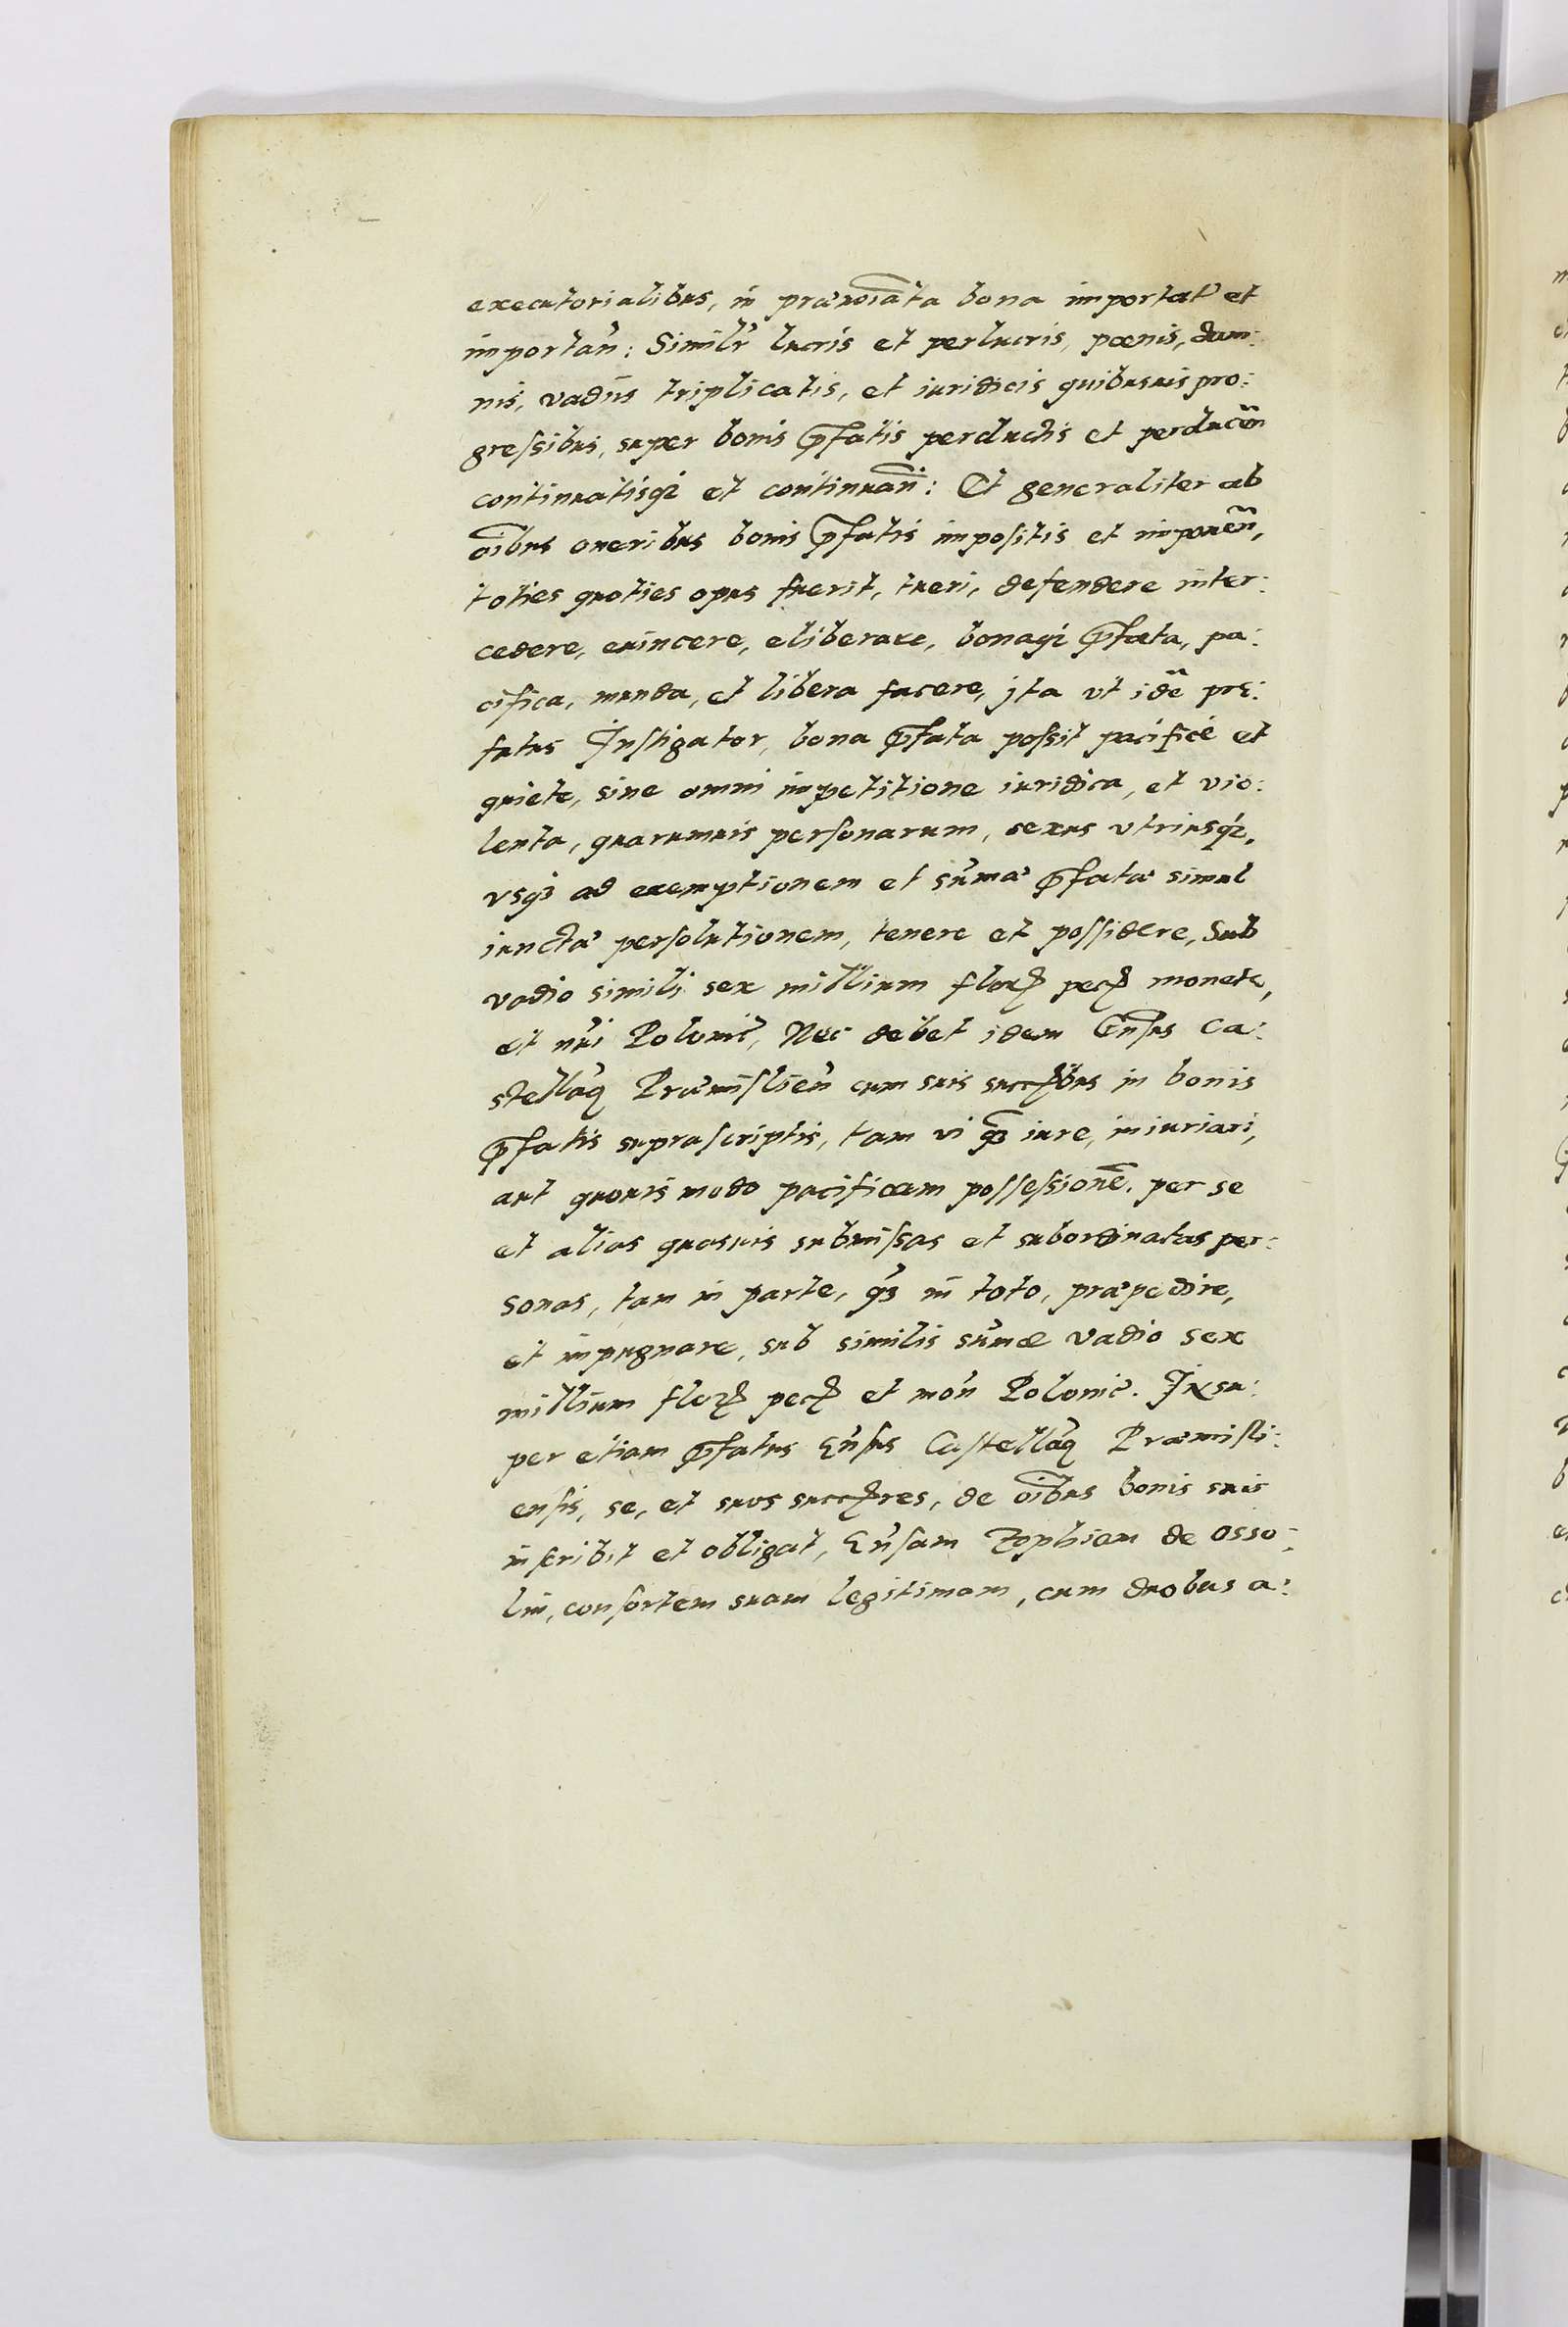 executorialibus, in prænoiãta bona importat' et
importan̄: Similr̃ lucris et perlucris, pœnis, dam:
nis, vadiis triplicatis, et iuridicis quibusuis pro:
gressibus, super bonis p̄fatis perductis et perducen̄
continuatisq₃ et continuan̄: Et generaliter ab
oĩbus oneribus bonis p̄fatis impositis et imponen̄,
toties quoties opus fuerit, tueri, defendere inter:
cedere, euincere, eliberare, bonaq₃ p̄fata, pa:
cifica, munda, et libera facere, jta vt idẽ præ:
fatus Instigator, bona p̄fata possit pacificè et
quiete, sine omni impetitione iuridica, et vio:
lenta, quarumuis personarum, sexus vtriusq₃,
vsq₃ ad exemptionem et sum̃æ p̄fatæ simul
iunctæ persolutionem, tenere et possidere, Sub
vadio simili sex millium floꝝ pecꝝ monetæ,
et nr̃i Polonic̃, Nec debet idem Gñsus Ca:
stellañ Præmislien̄ cum suis succꝝbus in bonis
p̄fatis suprascriptis, tam vi q̃₃ iure, iniuriari,
aut quouis modo pacificam possessionẽ, per se
et alias quasuis submissas et subordinatas per:
sonas, tam in parte, q̃₃ in toto, præpedire,
et impugnare, sub similis sum̃æ vadio sex
millium floꝝ pecꝝ et mon̄ Polonic̃. Insu:
per etiam p̄fatus Gñsus Castellañ Præmisli:
ensis, se, et suos succꝝres, de oĩbus bonis suis
inscribit et obligat, Gñsam Zophiam de Osso:
lin, consortem suam legitimam, cum duobus a: